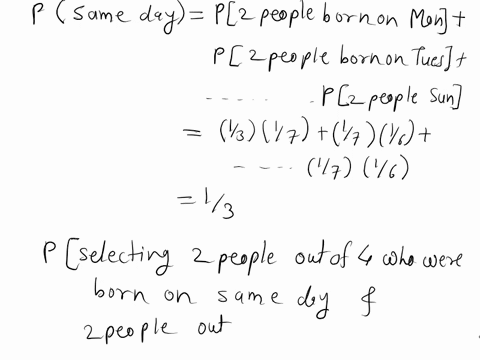 P (same day) = P[2 people born on Mon] +
P[2 people born on Tues] +
........ P[2 people Sun]
= (1/3)(1/7) + (1/7)(1/6) +
---- (1/7)(1/6)
= 1/3
P [selecting 2 people out of 4 who were
born on same day &
2 people out